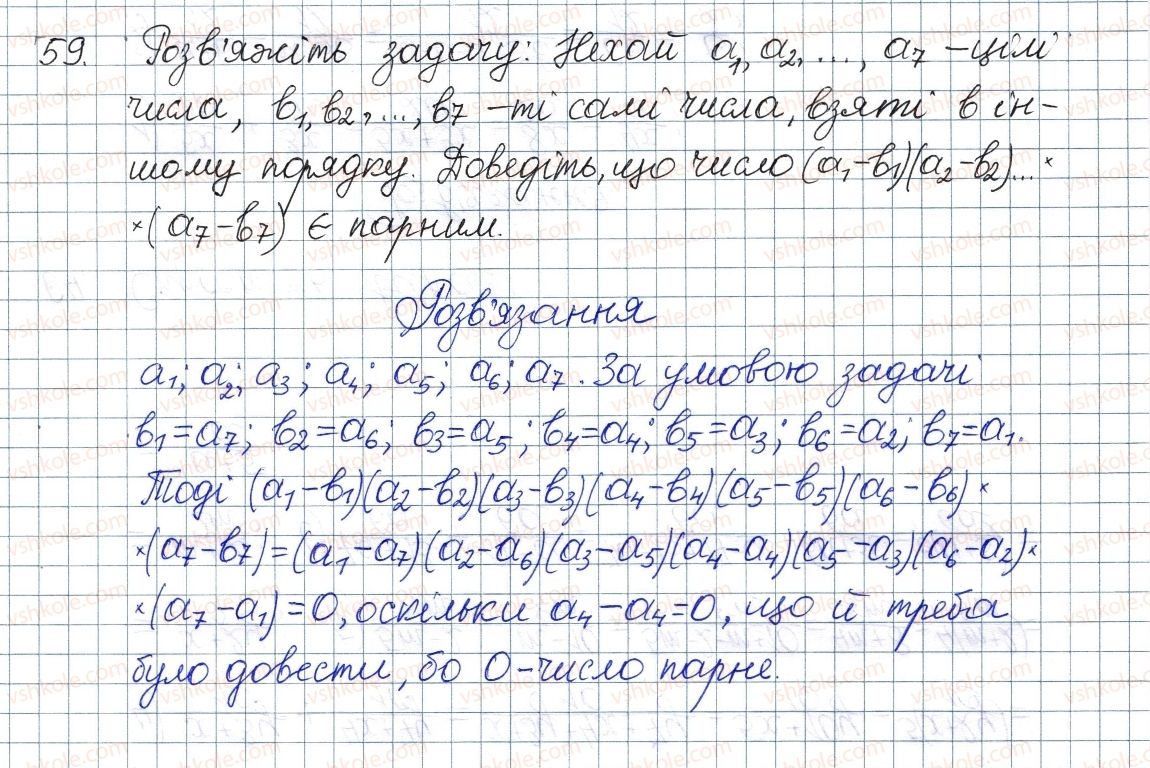 59. Розв'яжіть задачу: Нехай a₁, a₂, ..., a₇ – цілі
числа, b₁, b₂, ..., b₇ – ті самі числа, взяті в ін-
шому порядку. Доведіть, що число (a₁-b₁)(a₂-b₂)... ×
×(a₇-b₇) є парним.
Розв'язання
a₁; a₂; a₃; a₄; a₅; a₆; a₇. За умовою задачі
b₁=a₇; b₂=a₆; b₃=a₅; b₄=a₄; b₅=a₃; b₆=a₂; b₇=a₁.
Тоді (a₁-b₁)(a₂-b₂)(a₃-b₃)(a₄-b₄)(a₅-b₅)(a₆-b₆)×
×(a₇-b₇)=(a₁-a₇)(a₂-a₆)(a₃-a₅)(a₄-a₄)(a₅-a₃)(a₆-a₂)×
×(a₇-a₁)=0, оскільки a₄-a₄=0, що й треба
було довести, бо 0-число парне.